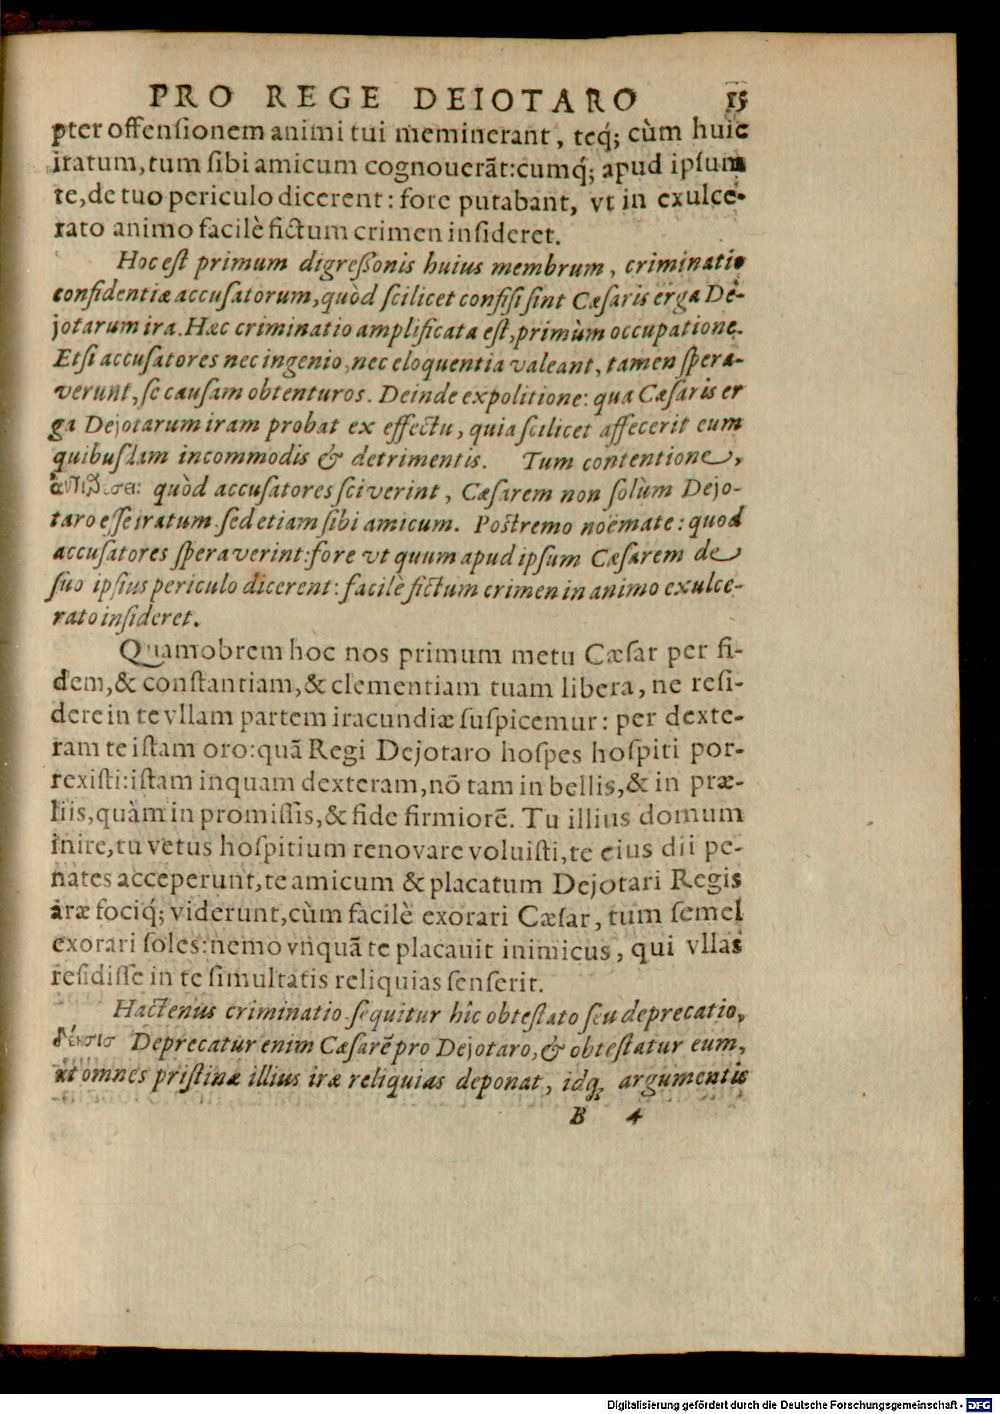 PRO REGE DEIOTARO 15
pter offensionem animi tui meminerant, teq́; cùm huic
iratum, tum sibi amicum cognouerãt: cumq́; apud ipsum
te, de tuo periculo dicerent: fore putabant, vt in exulce-
rato animo facilè fictum crimen insideret.
Hoc est primum digressonis huius membrum, criminatio
confidentiæ accusatorum, quòd scilicet confisi sint Cæsaris erga De-
jotarum ira. Hæc criminatio amplificata est, primùm occupatione.
Etsi accusatores nec ingenio, nec eloquentia valeant, tamen spera-
verunt, se causam obtenturos. Deinde expolitione: qua Cæsaris er
ga Dejotarum iram probat ex effectu, quia scilicet affecerit eum
quibusdam incommodis & detrimentis. Tum contentione,
quòd accusatores sciverint, Cæsarem non solùm Dejo-
taro esse iratum. sed etiam sibi amicum. Postremo noëmate: quod
accusatores speraverint: fore vt quum apud ipsum Cæsarem de
suo ipsius periculo dicerent: facilè fictum crimen in animo exulce-
rato insideret.
Quamobrem hoc nos primum metu Cæsar per fi-
dem, & constantiam, & clementiam tuam libera, ne resi-
dere in te vllam partem iracundiæ suspicemur: per dexte-
ram te istam oro: quã Regi Dejotaro hospes hospiti por-
rexisti: istam inquam dexteram, nõ tam in bellis, & in præ-
liis, quàm in promissis, & fide firmiorẽ. Tu illius domum
inire, tu vetus hospitium renovare voluisti, te eius dii pe-
nates acceperunt, te amicum & placatum Dejotari Regis
aræ fociq́; viderunt, cùm facilè exorari Cæsar, tum semel
exorari soles: nemo vnquã te placavit inimicus, qui vllas
resdisse in te simultatis reliquias senserit.
Hactenus criminatio. sequitur hîc obtestato seu deprecatio,
Deprecatur enim Cæsarẽ pro Dejotaro, & obtestatur eum,
vt omnes pristinæ illius iræ reliquias deponat, idq; argumentis
B 4
Digitalisierung gefördert durch die Deutsche Forschungsgemeinschaft - DFG